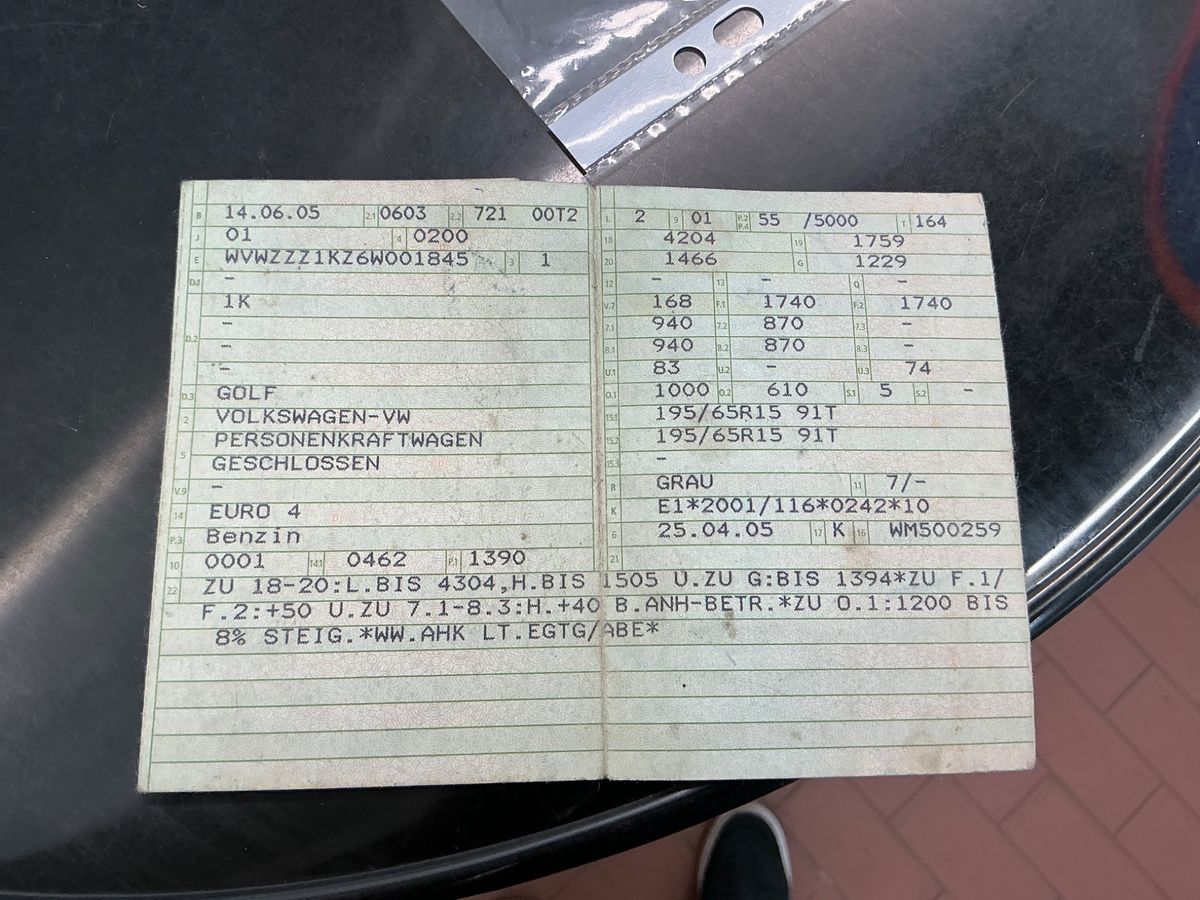 B 14.06.05 2.1 0603 2.2 721 00T2
J 01 4 0200
E WVWZZZ1KZ6W001845 3 1
D.1 -
1K
D.2 -
-
-
D.3 GOLF
2 VOLKSWAGEN-VW
5 PERSONENKRAFTWAGEN
GESCHLOSSEN
V.9 -
14 EURO 4
P.3 Benzin
10 0001 14.1 0462 P.1 1390
L 2 9 01 P.2 P.4 55 /5000 T 164
18 4204 19 1759
20 1466 G 1229
12 - 13 - Q -
V.7 168 F.1 1740 F.2 1740
7.1 940 7.2 870 7.3 -
8.1 940 8.2 870 8.3 -
U.1 83 U.2 - U.3 74
O.1 1000 O.2 610 S.1 5 S.2 -
15.1 195/65R15 91T
15.2 195/65R15 91T
15.3 -
R GRAU 11 7/-
K E1*2001/116*0242*10
6 25.04.05 17 K 16 WM500259
21
22 ZU 18-20:L.BIS 4304,H.BIS 1505 U.ZU G:BIS 1394*ZU F.1/
F.2:+50 U.ZU 7.1-8.3:H.+40 B.ANH-BETR.*ZU O.1:1200 BIS
8% STEIG.*WW.AHK LT.EGTG/ABE*